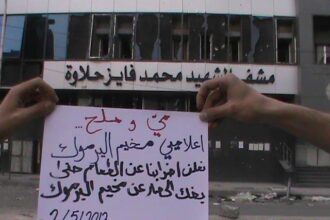 مشفى الشهيد محمد فايز حلاوة
مي و ملح ...
اعلاميي مخيم اليرموك
نعلن اضرابنا عن الطعام حتى
يفك الحصار عن مخيم اليرموك